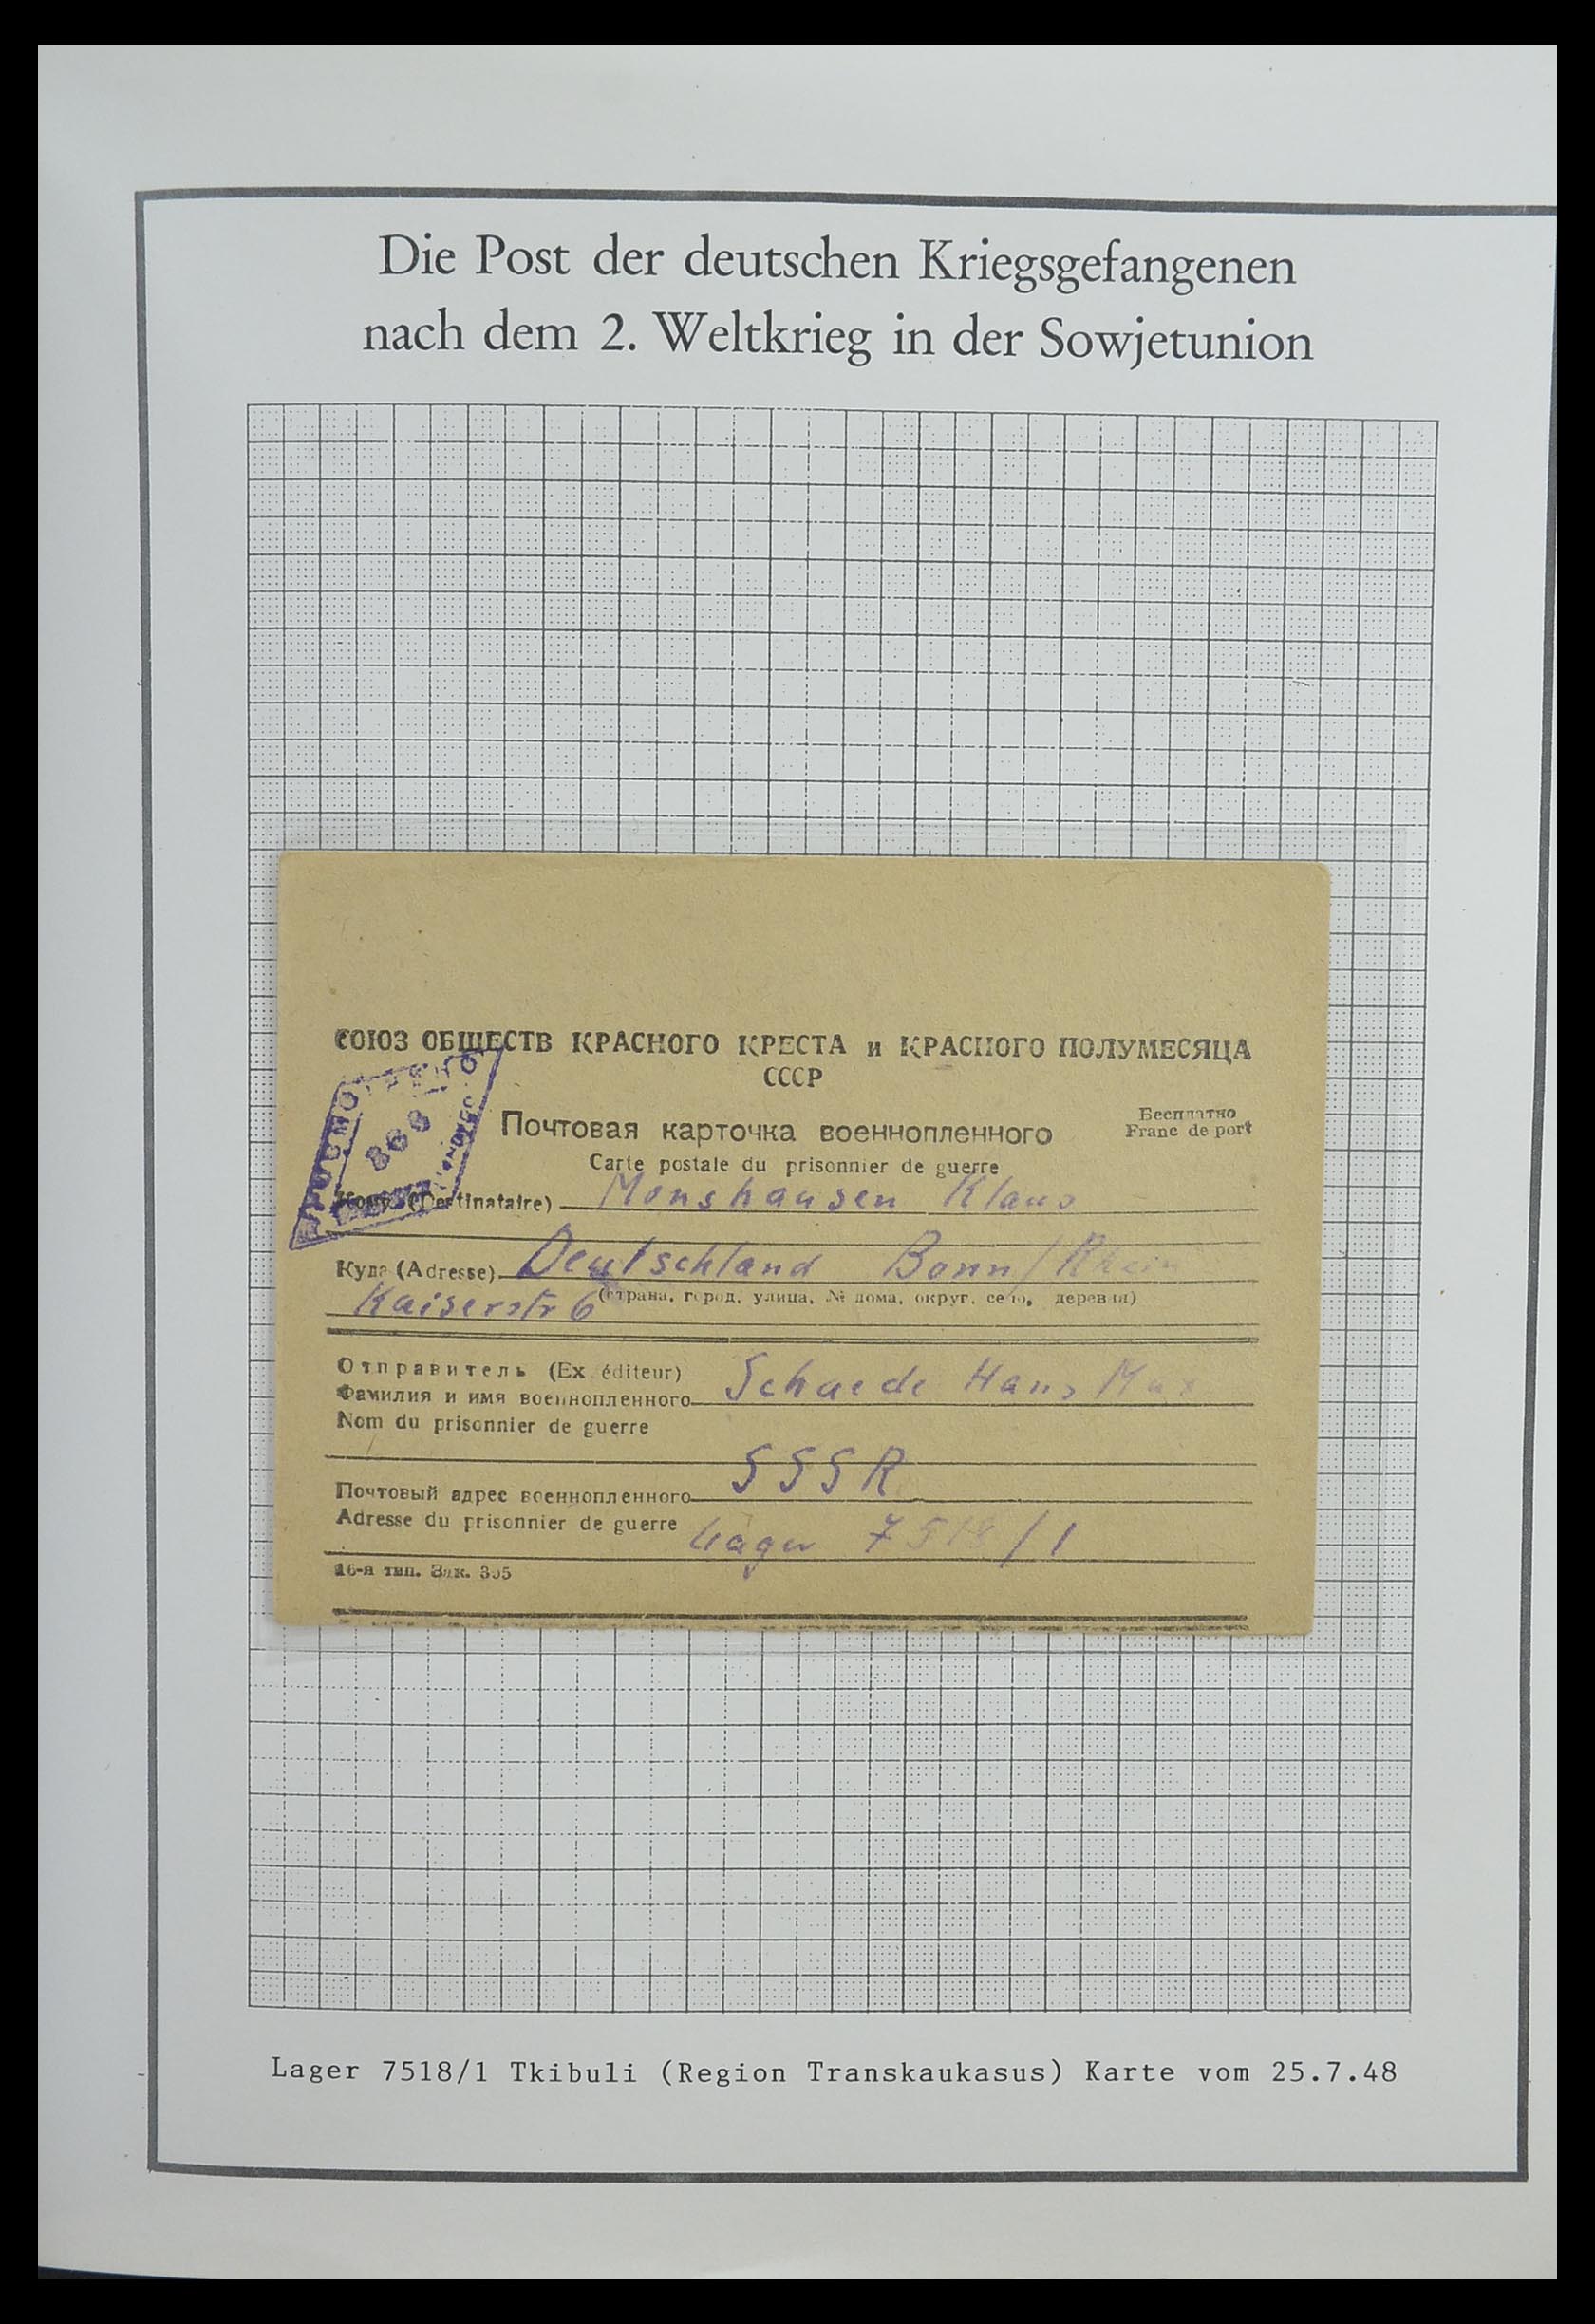 Die Post der deutschen Kriegsgefangenen
nach dem 2. Weltkrieg in der Sowjetunion
СОЮЗ ОБЩЕСТВ КРАСНОГО КРЕСТА и КРАСНОГО ПОЛУМЕСЯЦА
СССР
Почтовая карточка военнопленного
Бесплатно
Franc de port
Carte postale du prisonnier de guerre
Кому (Destinataire) Monshausen Klaus
Куда (Adresse) Deutschland Bonn/Rhein
(страна, город, улица, № дома, округ, село, деревня)
Kaiserstr 6
Отправитель (Ex éditeur)
Фамилия и имя военнопленного Schaede Hans Max
Nom du prisonnier de guerre
SSSR
Почтовый адрес военнопленного
Adresse du prisonnier de guerre Lager 7518/1
16-я тип. Зак. 305
Lager 7518/1 Tkibuli (Region Transkaukasus) Karte vom 25.7.48